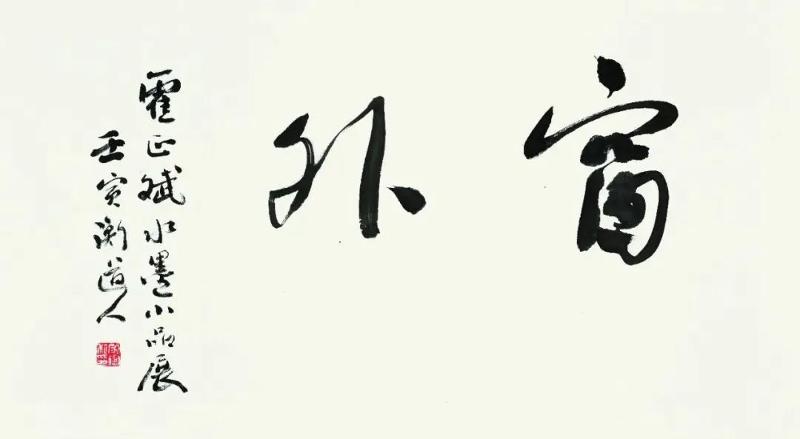 窗外
霍正斌水墨小品展
壬寅衡道人